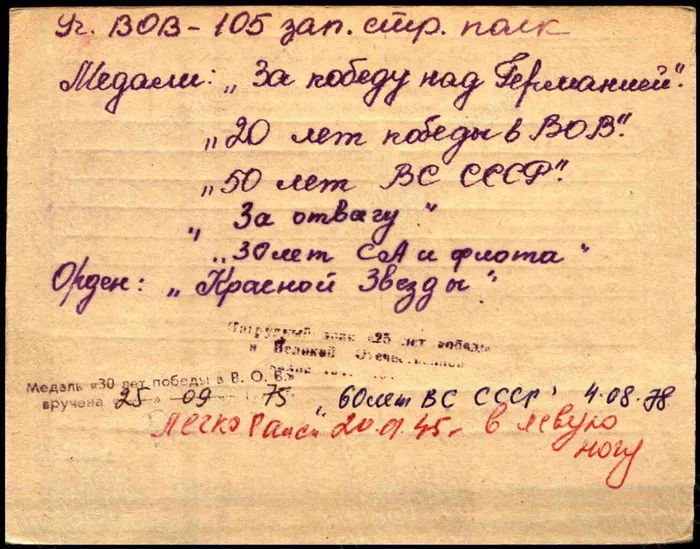 Уч. ВОВ - 105 зап. стр. полк
Медали: „За победу над Германией".
„20 лет победы в ВОВ".
„50 лет ВС СССР".
„За отвагу"
„30 лет СА и флота"
Орден: „Красной Звезды"
Нагрудный знак «25 лет победы
в Великой Отечественной
Медаль «30 лет победы в В. О. В.»
вручена «25» 09 75
„60 лет ВС СССР" 4.08.78
Легко ранен 20.01.45г в левую
ногу